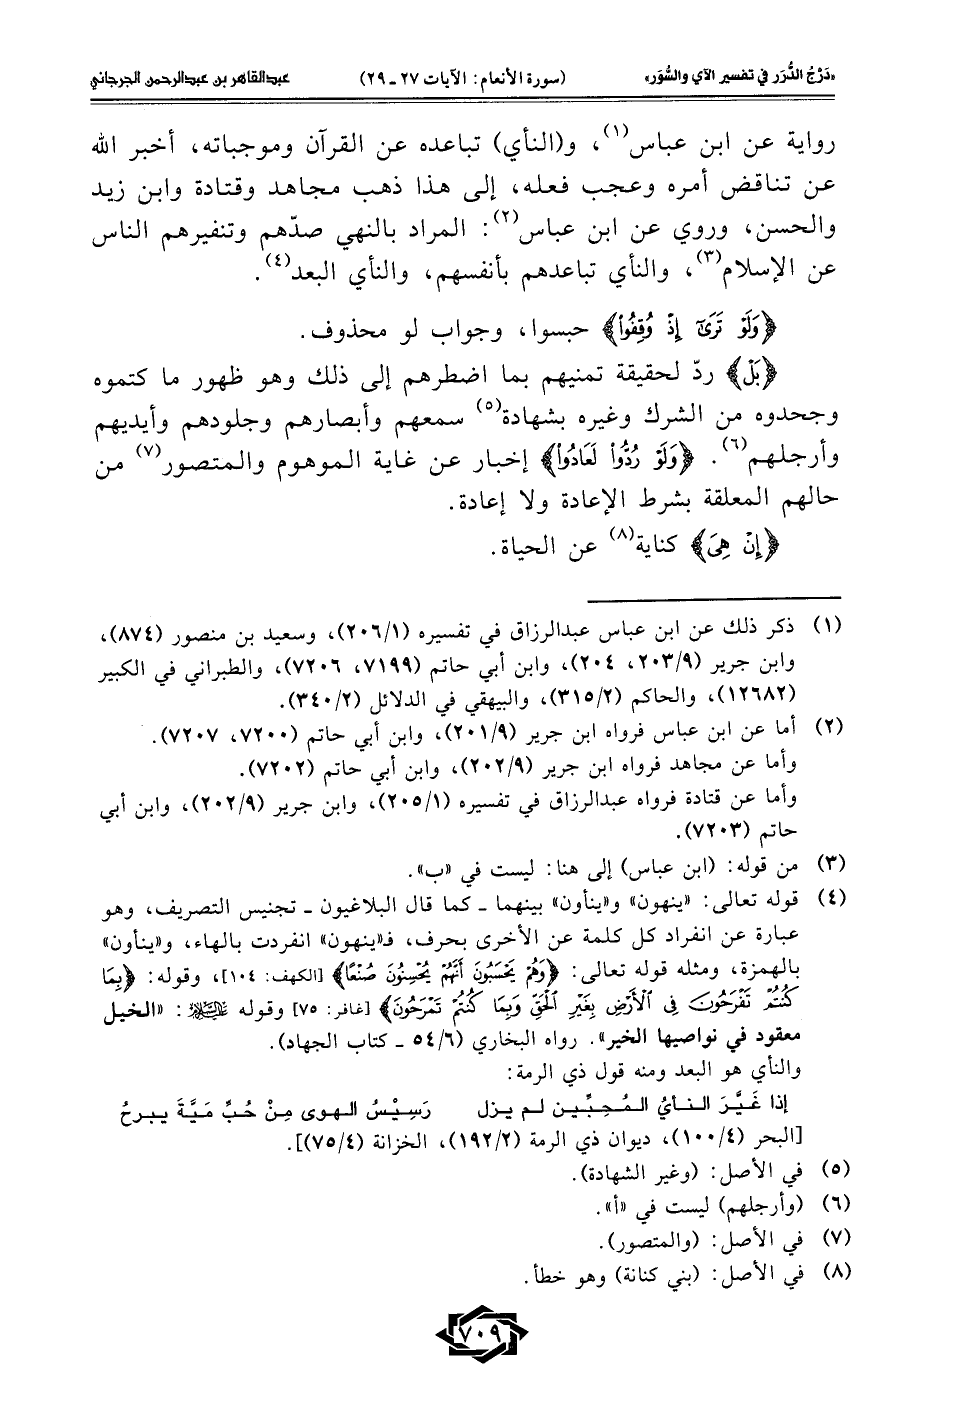 «دَرْجُ الدُّرَر في تفسير الآي والسُّوَر» (سورة الأنعام: الآيات ٢٧ ـ ٢٩) عبدالقاهر بن عبدالرحمن الجرجاني
رواية عن ابن عباس(١)، و(النأي) تباعده عن القرآن وموجباته، أخبر الله
عن تناقض أمره وعجب فعله، إلى هذا ذهب مجاهد وقتادة وابن زيد
والحسن، وروي عن ابن عباس(٢): المراد بالنهي صدّهم وتنفيرهم الناس
عن الإسلام(٣)، والنأي تباعدهم بأنفسهم، والنأي البعد(٤).
﴿وَلَوْ تَرَىٰٓ إِذْ وُقِفُوا۟﴾ حبسوا، وجواب لو محذوف.
﴿بَلْ﴾ ردّ لحقيقة تمنيهم بما اضطرهم إلى ذلك وهو ظهور ما كتموه
وجحدوه من الشرك وغيره بشهادة(٥) سمعهم وأبصارهم وجلودهم وأيديهم
وأرجلهم(٦). ﴿وَلَوْ رُدُّوا۟ لَعَادُوا۟﴾ إخبار عن غاية الموهوم والمتصور(٧) من
حالهم المعلقة بشرط الإعادة ولا إعادة.
﴿إِنْ هِىَ﴾ كناية(٨) عن الحياة.
(١) ذكر ذلك عن ابن عباس عبدالرزاق في تفسيره (٢٠٦/١)، وسعيد بن منصور (٨٧٤)،
وابن جرير (٢٠٣/٩، ٢٠٤)، وابن أبي حاتم (٧١٩٩، ٧٢٠٦)، والطبراني في الكبير
(١٢٦٨٢)، والحاكم (٣١٥/٢)، والبيهقي في الدلائل (٣٤٠/٢).
(٢) أما عن ابن عباس فرواه ابن جرير (٢٠١/٩)، وابن أبي حاتم (٧٢٠٠، ٧٢٠٧).
وأما عن مجاهد فرواه ابن جرير (٢٠٢/٩)، وابن أبي حاتم (٧٢٠٢).
وأما عن قتادة فرواه عبدالرزاق في تفسيره (٢٠٥/١)، وابن جرير (٢٠٢/٩)، وابن أبي
حاتم (٧٢٠٣).
(٣) من قوله: (ابن عباس) إلى هنا: ليست في «ب».
(٤) قوله تعالى: «ينهون» و«ينأون» بينهما ـ كما قال البلاغيون ـ تجنيس التصريف، وهو
عبارة عن انفراد كل كلمة عن الأخرى بحرف، فـ«ينهون» انفردت بالهاء، و«ينأون»
بالهمزة، ومثله قوله تعالى: ﴿وَهُمْ يَحْسَبُونَ أَنَّهُمْ يُحْسِنُونَ صُنْعًا﴾ [الكهف: ١٠٤]، وقوله: ﴿بِمَا
كُنتُمْ تَفْرَحُونَ فِى ٱلْأَرْضِ بِغَيْرِ ٱلْحَقِّ وَبِمَا كُنتُمْ تَمْرَحُونَ﴾ [غافر: ٧٥] وقوله ﷺ: «الخيل
معقود في نواصيها الخير». رواه البخاري (٥٤/٦ ـ كتاب الجهاد).
والنأي هو البعد ومنه قول ذي الرمة:
إذا غَيَّرَ النأيُ المُحِبِّين لم يزل رَسِيْسُ الهوى مِنْ حُبِّ مَيَّةَ يبرحُ
[البحر (١٠٠/٤)، ديوان ذي الرمة (١٩٢/٢)، الخزانة (٧٥/٤)].
(٥) في الأصل: (وغير الشهادة).
(٦) (وأرجلهم) ليست في «أ».
(٧) في الأصل: (والمتصور).
(٨) في الأصل: (بني كنانة) وهو خطأ.
٧٠٩